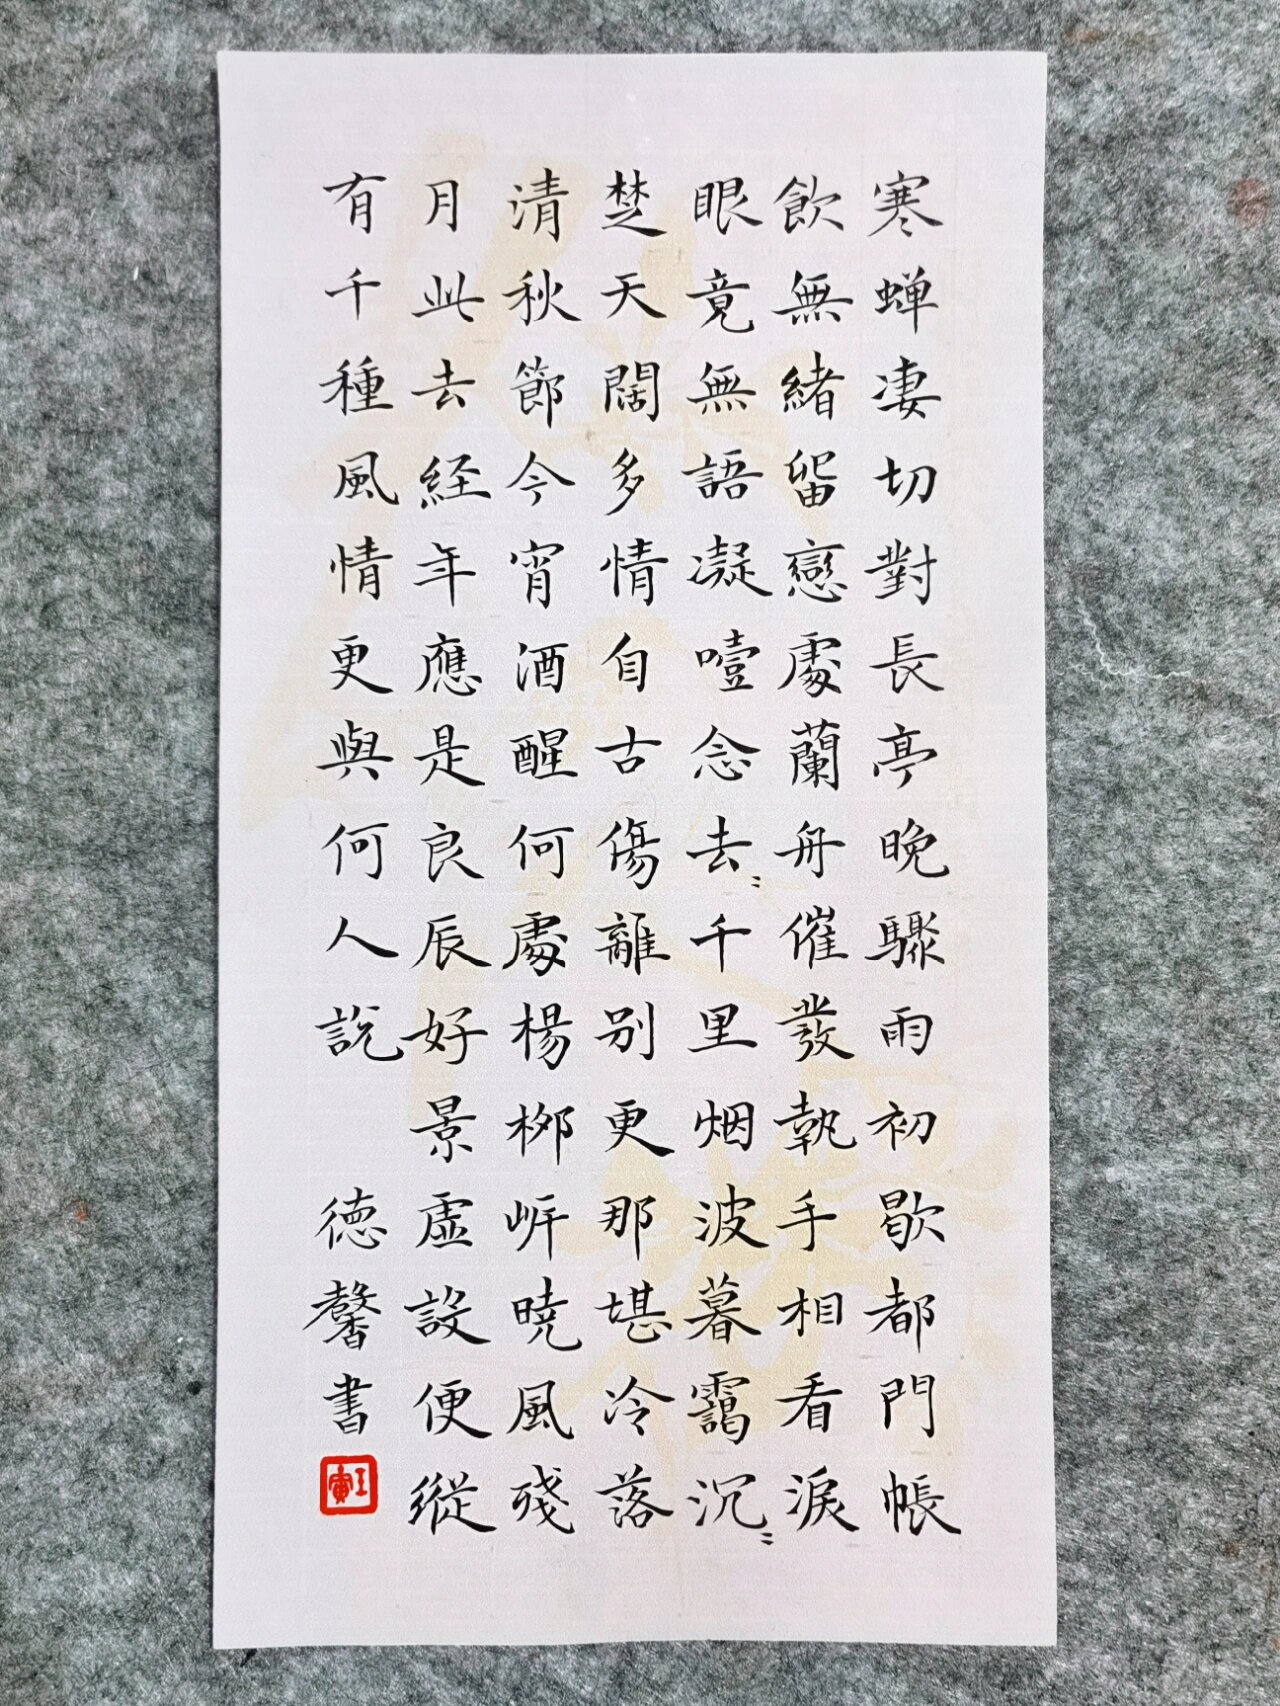 寒蝉凄切對長亭晚驟雨初歇都門帳
飲無緒留戀處蘭舟催發執手相看淚
眼竟無語凝噎念去〻千里烟波暮靄沉〻
楚天闊多情自古傷離别更那堪冷落
清秋節今宵酒醒何處楊栁岍曉風殘
月此去経年應是良辰好景虛設便縱
有千種風情更與何人說
德馨書